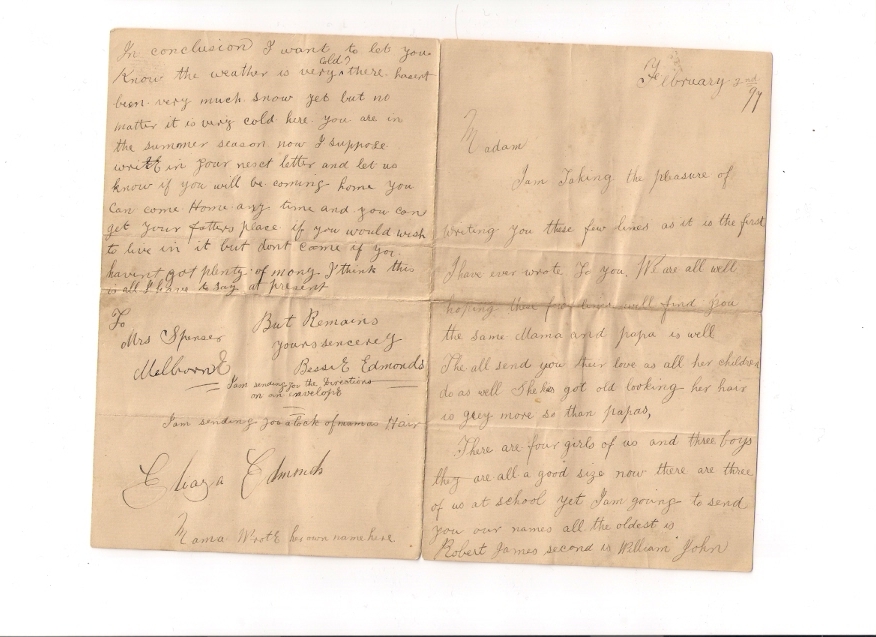 February 2nd
97
Madam
I am Taking the pleasure of
writing you these few lines as it is the first
I have ever wrote To you, We are all well
hoping these few lines will find you
the same Mama and papa is well
The all send you their love as all her children
do as well She has got old looking her hair
is grey more so than papas,
There are four girls of us and three boys
they are all a good size now there are three
of us at school yet I am going to send
you our names all the oldest is
Robert James second is William John
In conclusion I want to let you
Know the weather is very cold there hasent
been very much snow yet but no
matter it is very cold here you are in
the summer season now I suppose
writE in your next letter and let us
know if you will be coming home you
can come Home any time and you can
get your fathers place if you would wish
to live in it but dont come if you
havent got plenty of mony I think this
is all I have to say at present
But Remains
yours sincerely
BessiE Edmonds
To
Mrs Spenser
MelbornE
I am sending you the Directions
on an invelope
I am sending you a lock of mamas Hair
Eliaza Edmonds
Mama WrotE her own name here